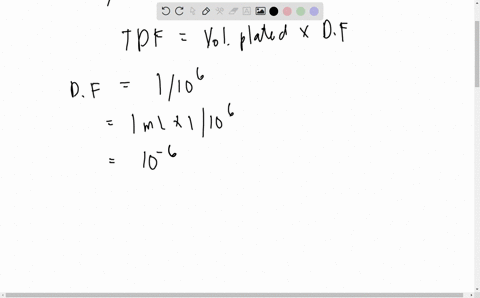 TDF = Vol. plated x D.F
D.F = 1/10⁶
= 1 ml x 1/10⁶
= 10⁻⁶